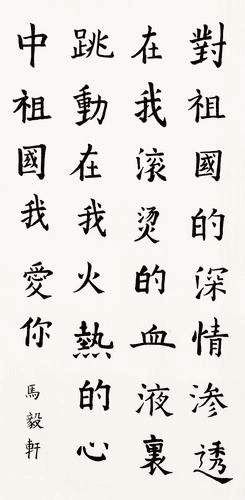 對祖國的深情滲透
在我滚燙的血液裏
跳動在我火熱的心
中祖國我愛你
馬毅軒